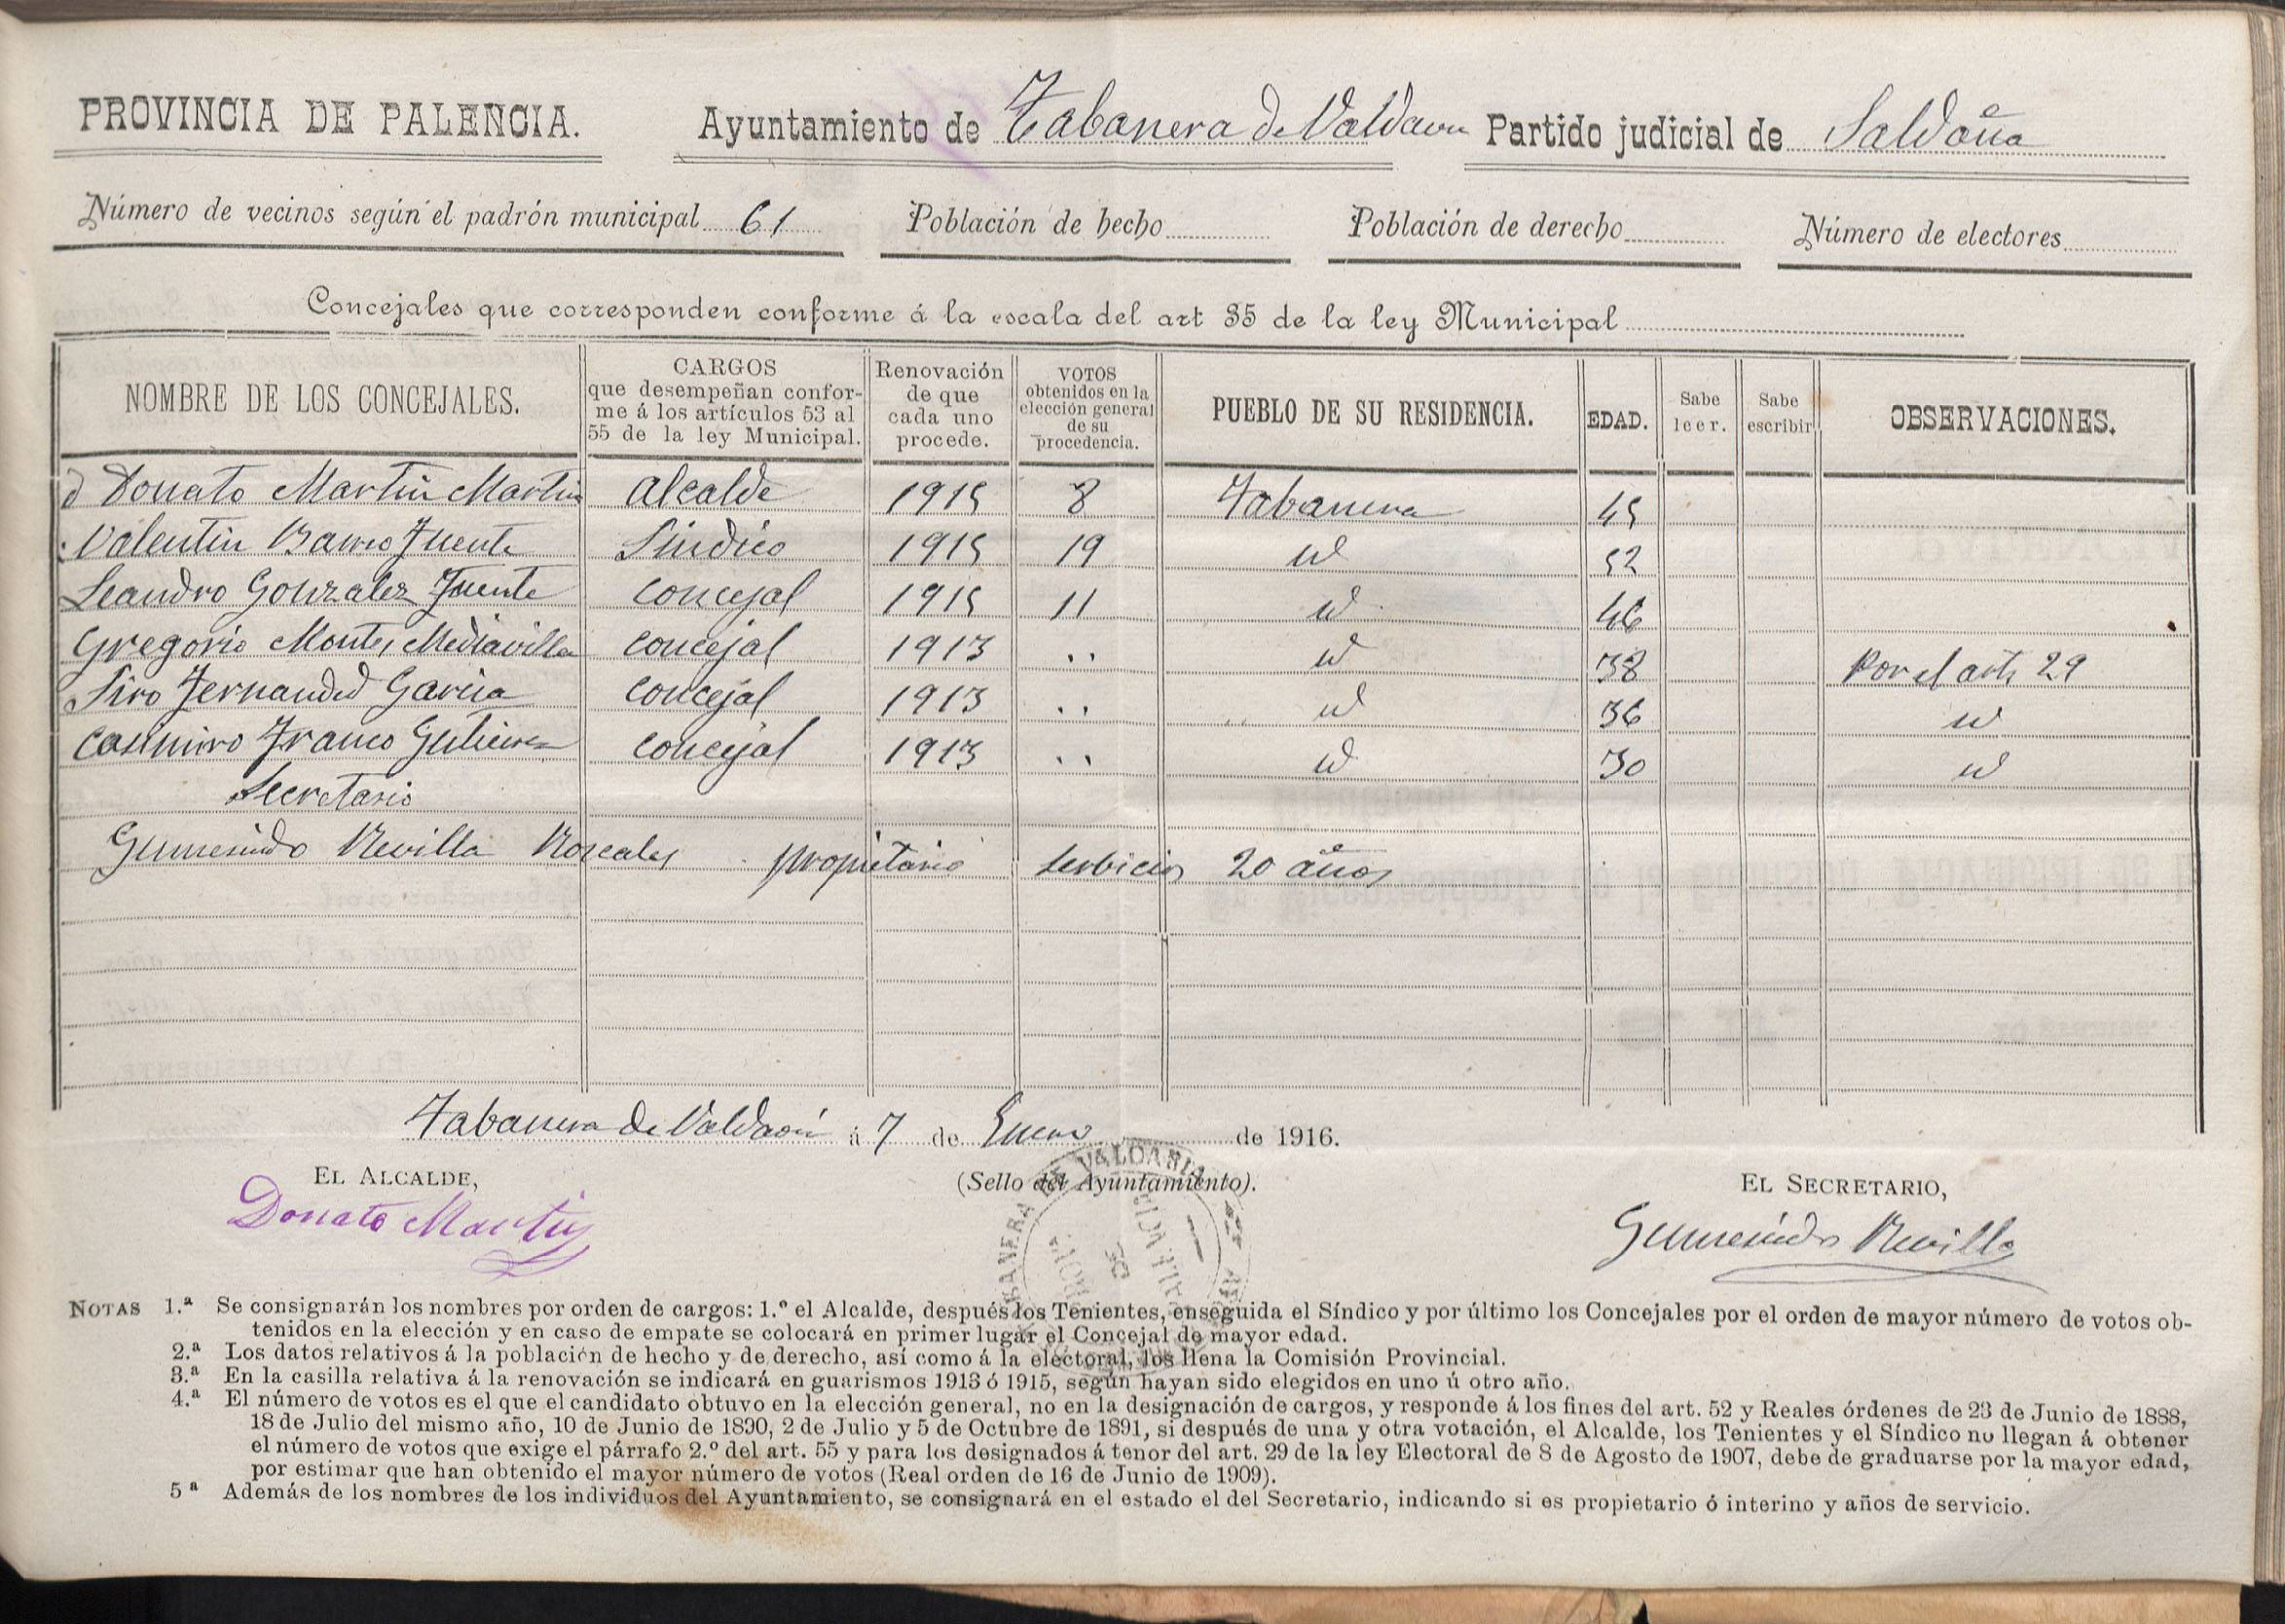 PROVINCIA DE PALENCIA. Ayuntamiento de Tabanera de Valdavia Partido judicial de Saldaña
Número de vecinos según el padrón municipal 61 Población de hecho Población de derecho Número de electores
Concejales que corresponden conforme á la escala del art 35 de la ley Municipal
NOMBRE DE LOS CONCEJALES. CARGOS que desempeñan conforme á los artículos 53 al 55 de la ley Municipal. Renovación de que cada uno procede. VOTOS obtenidos en la elección general de su procedencia. PUEBLO DE SU RESIDENCIA. EDAD. Sabe leer. Sabe escribir OBSERVACIONES.
D Donato Martin Martin alcalde 1915 8 Tabanera 45
Valentin Barrio Fuente Sindico 1915 19 id 52
Leandro Gonzalez Fuente concejal 1915 11 id 46
Gregorio Montes Mediavilla concejal 1913 .. id 38 Por el art 29
Siro Fernandez Garcia concejal 1913 .. id 36 id
Casimiro Franco Gutierrez concejal 1913 .. id 30 id
Secretario
Gumersindo Revilla propietario serbicios 20 años
Tabanera de Valdavia á 7 de Enero de 1916.
EL ALCALDE, (Sello del Ayuntamiento). EL SECRETARIO,
Donato Martin Gumersindo Revilla
NOTAS 1.ª Se consignarán los nombres por orden de cargos: 1.º el Alcalde, después los Tenientes, enseguida el Síndico y por último los Concejales por el orden de mayor número de votos ob-
tenidos en la elección y en caso de empate se colocará en primer lugar el Concejal de mayor edad.
2.ª Los datos relativos á la población de hecho y de derecho, así como á la electoral, los llena la Comisión Provincial.
3.ª En la casilla relativa á la renovación se indicará en guarismos 1913 ó 1915, según hayan sido elegidos en uno ú otro año.
4.ª El número de votos es el que el candidato obtuvo en la elección general, no en la designación de cargos, y responde á los fines del art. 52 y Reales órdenes de 23 de Junio de 1888,
18 de Julio del mismo año, 10 de Junio de 1890, 2 de Julio y 5 de Octubre de 1891, si después de una y otra votación, el Alcalde, los Tenientes y el Síndico no llegan á obtener
el número de votos que exige el párrafo 2.º del art. 55 y para los designados á tenor del art. 29 de la ley Electoral de 8 de Agosto de 1907, debe de graduarse por la mayor edad,
por estimar que han obtenido el mayor número de votos (Real orden de 16 de Junio de 1909).
5ª Además de los nombres de los individuos del Ayuntamiento, se consignará en el estado el del Secretario, indicando si es propietario ó interino y años de servicio.